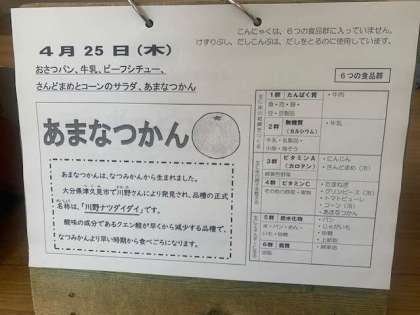 こんにゃくは、６つの食品群に入っていません。
けずりぶし、だしこんぶは、だしをとるのに使用しています。
４月２５日（木）
おさつパン、牛乳、ビーフシチュー、
さんどまめとコーンのサラダ、あまなつかん
６つの食品群
あまなつかん
あまなつかんは、なつみかんから生まれました。
大分県津久見市で川野さんにより発見され、品種の正式
名称は、「川野ナツダイダイ」です。
酸味の成分であるクエン酸が早くから減少する品種で、
なつみかんより早い時期から食べごろになります。
１群 たんぱく質
魚・肉・卵・
豆・豆製品
・牛肉
２群 無機質
（カルシウム）
牛乳・乳製品・
小魚・海そう
・牛乳
３群 ビタミンA
（カロテン）
緑黄色野菜
・にんじん
・さんどまめ（冷）
４群 ビタミンC
その他の野菜・果物
・たまねぎ
・グリンピース（冷）
・トマトピューレ
・コーン（冷）
・あまなつかん
５群 炭水化物
米・パン・めん・
いも・砂糖
・パン
・じゃがいも
・砂糖
・上新粉
６群 脂質